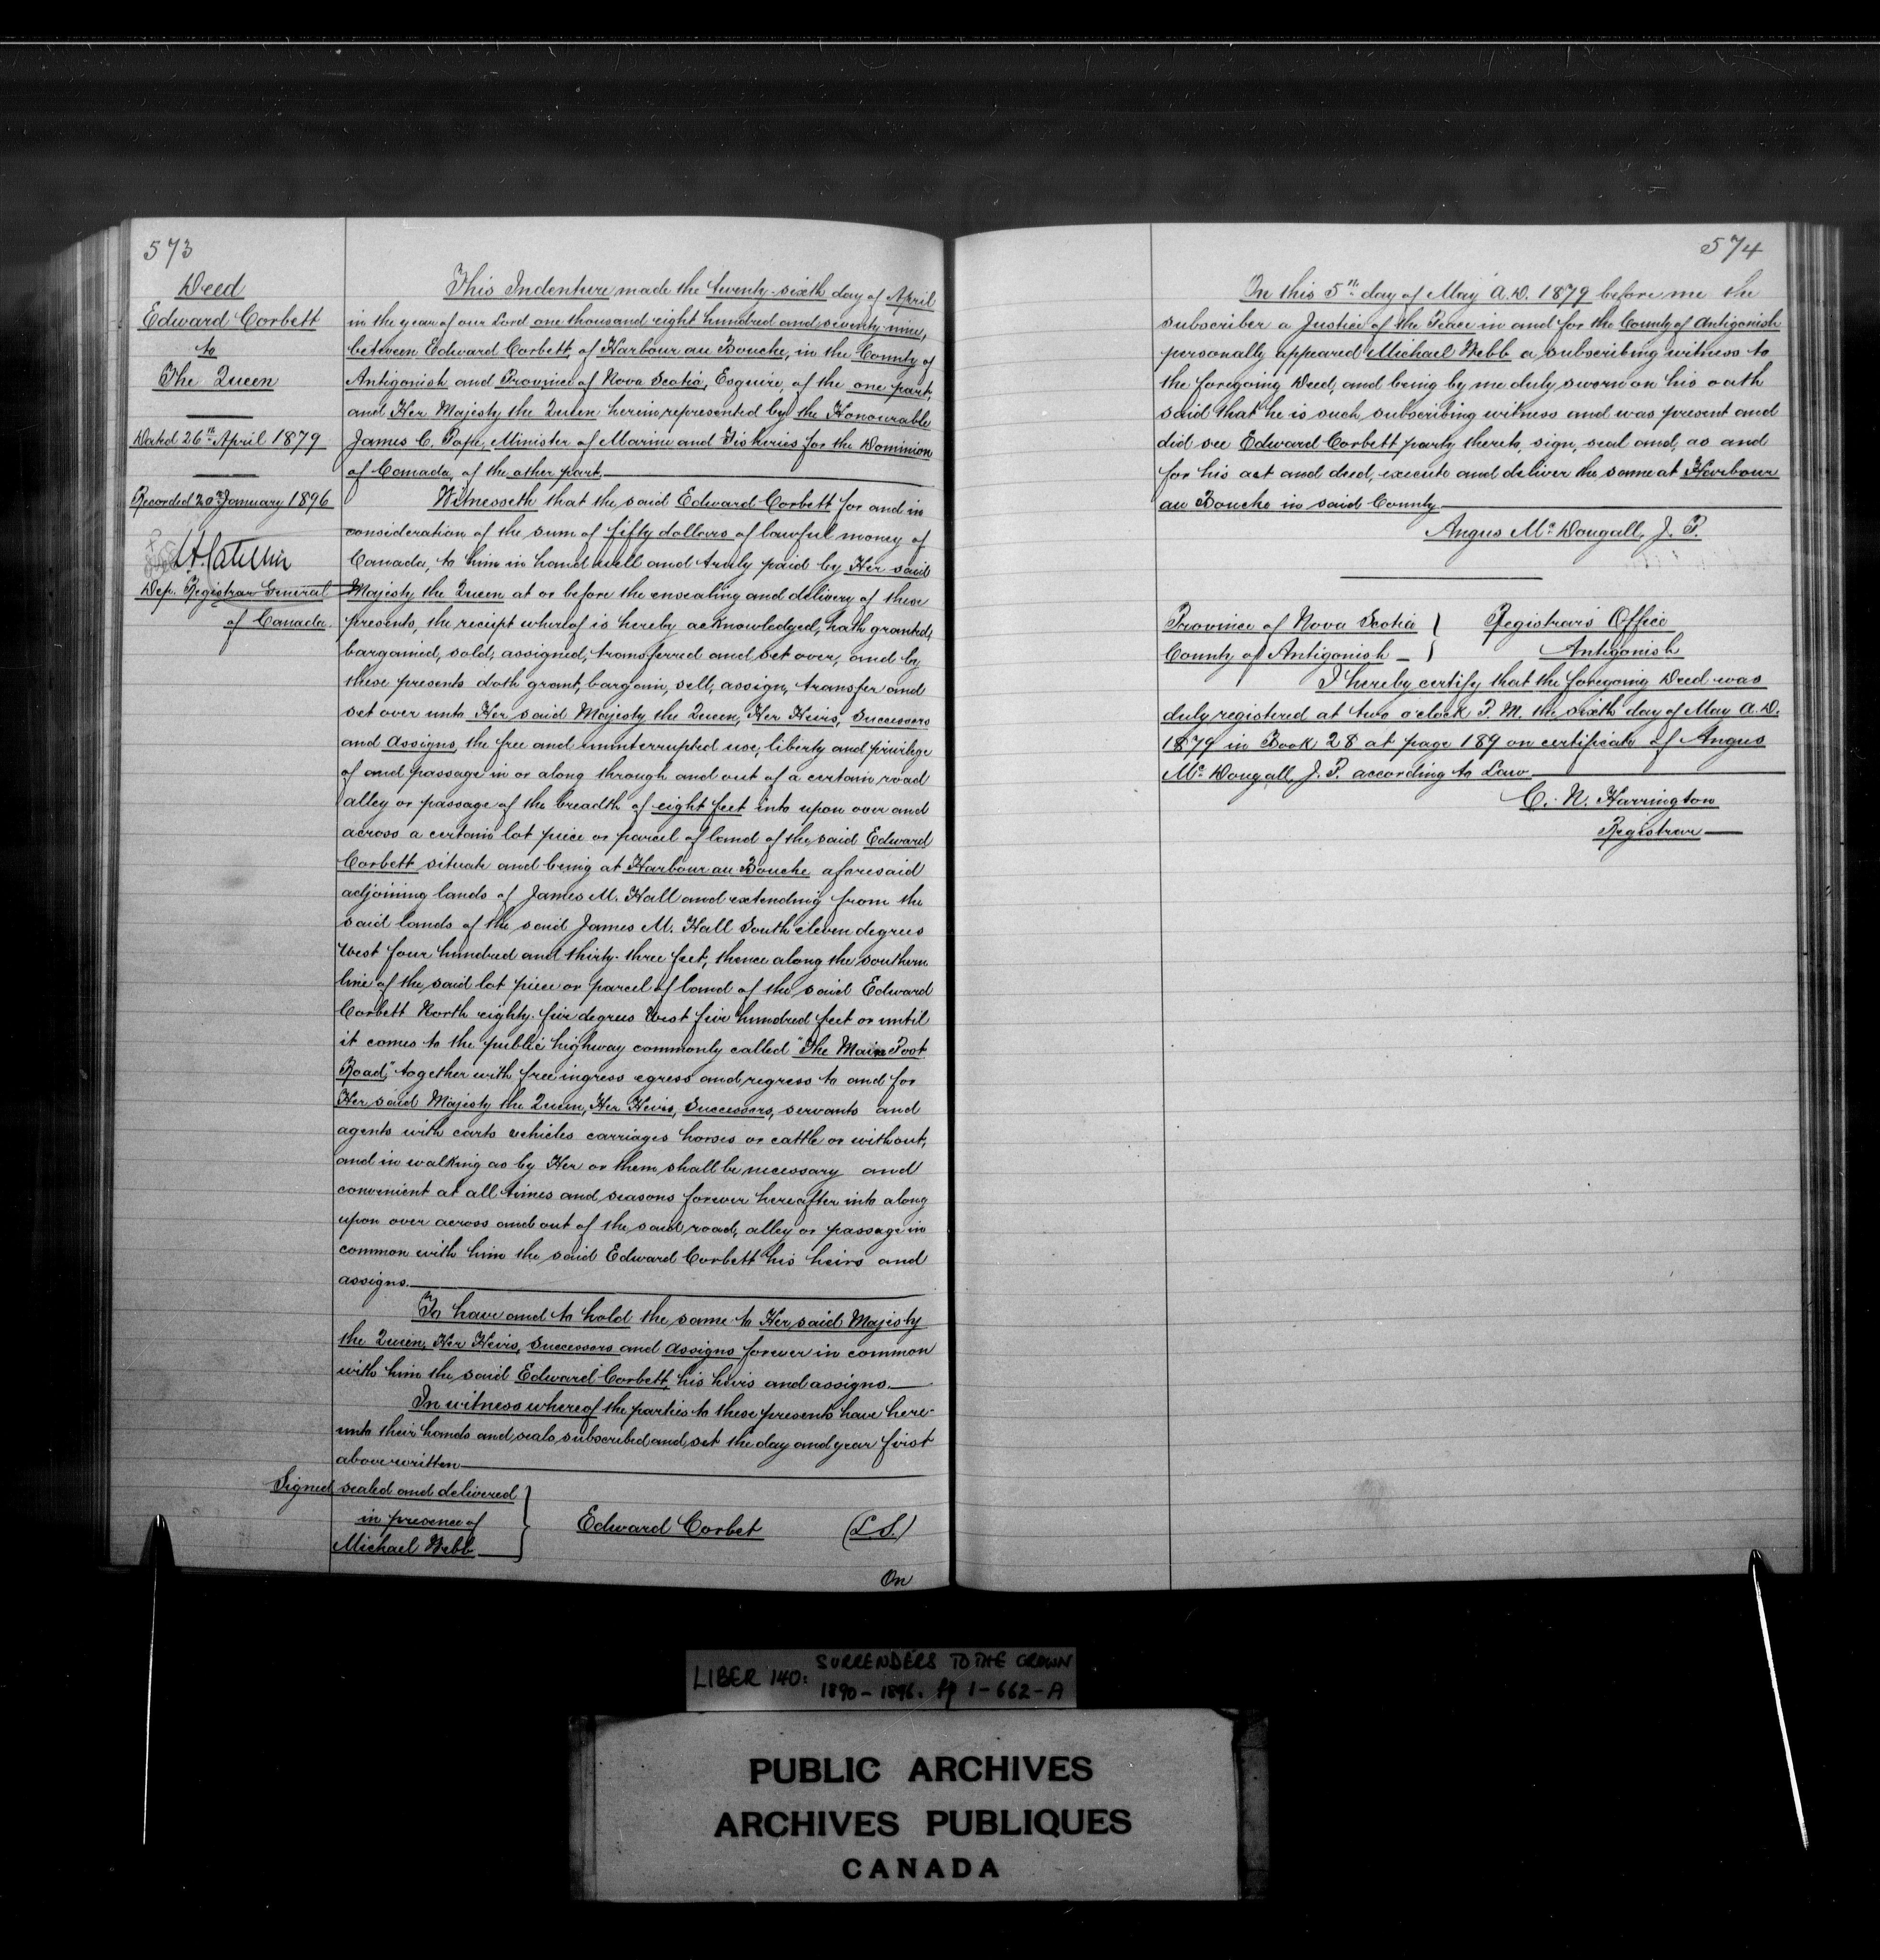 573
Deed
Edward Corbett
to
The Queen
Dated 26th April 1879
Recorded 20th January 1896
Dep. Registrar General
of Canada.
This Indenture made the twenty-sixth day of April
in the year of our Lord one thousand eight hundred and seventy nine,
between Edward Corbett, of Harbour au Bouche, in the County of
Antigonish and Province of Nova Scotia, Esquire, of the one part,
and Her Majesty the Queen herein represented by the Honourable
James C. Pope, Minister of Marine and Fisheries for the Dominion
of Canada, of the other part.
Witnesseth that the said Edward Corbett for and in
consideration of the sum of fifty dollars of lawful money of
Canada, to him in hand well and truly paid by Her said
Majesty the Queen at or before the ensealing and delivery of these
presents, the receipt whereof is hereby acknowledged, hath granted,
bargained, sold, assigned, transferred and set over, and by
these presents doth grant, bargain, sell, assign, transfer and
set over unto Her said Majesty the Queen, Her Heirs, Successors
and Assigns, the free and uninterrupted use, liberty and privilege
of and passage in or along through and out of a certain road
alley or passage of the breadth of eight feet into upon over and
across a certain lot piece or parcel of land of the said Edward
Corbett situate and being at Harbour au Bouche aforesaid
adjoining lands of James M. Hall and extending from the
said lands of the said James M. Hall South eleven degrees
West four hundred and thirty-three feet, thence along the southern
line of the said lot piece or parcel of land of the said Edward
Corbett North eighty-five degrees West five hundred feet or until
it comes to the public highway commonly called "The Main Post
Road," together with free ingress egress and regress to and for
Her said Majesty the Queen, Her Heirs, Successors, servants and
agents with carts vehicles carriages horses or cattle or without,
and in walking as by Her or them shall be necessary and
convenient at all times and seasons forever hereafter into along
upon over across and out of the said road, alley or passage in
common with him the said Edward Corbett his heirs and
assigns.
To have and to hold the same to Her said Majesty
the Queen, Her Heirs, Successors and Assigns forever in common
with him the said Edward Corbett, his heirs and assigns.
In witness whereof the parties to these presents have here-
unto their hands and seals subscribed and set the day and year first
above written
Signed sealed and delivered
in presence of
Michael Webb
Edward Corbet (L S.)
On
574
On this 5th day of May A.D. 1879 before me the
subscriber a Justice of the Peace in and for the County of Antigonish
personally appeared Michael Webb a subscribing witness to
the foregoing Deed, and being by me duly sworn on his oath
said that he is such subscribing witness and was present and
did see Edward Corbett party thereto, sign, seal and, as and
for his act and deed, execute and deliver the same at Harbour
au Bouche in said County
Angus Mc Dougall, J. P.
Province of Nova Scotia } Registrar's Office
County of Antigonish } Antigonish
I hereby certify that the foregoing Deed was
duly registered at two o'clock P. M. the sixth day of May A.D.
1879 in Book 28 at page 189 on certificate of Angus
Mc Dougall, J. P. according to Law
C. N. Harrington
Registrar
LIBER 140: SURRENDERS TO THE CROWN
1890-1896. pp 1-662-A
PUBLIC ARCHIVES
ARCHIVES PUBLIQUES
CANADA